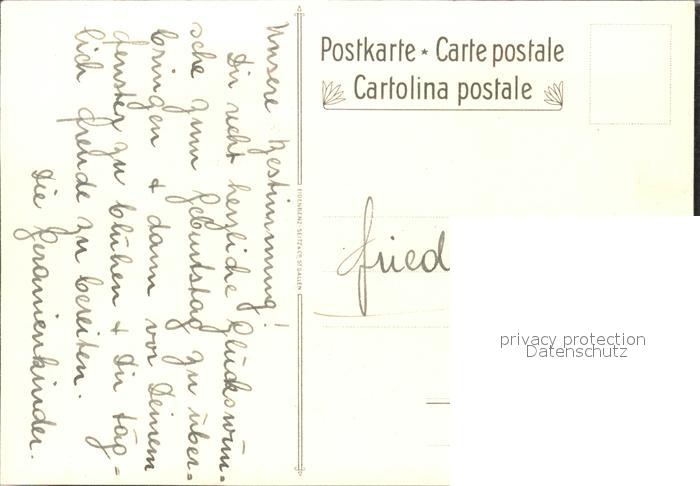 Postkarte ★ Carte postale
Cartolina postale
Unsere Bestimmung!
Dir recht herzliche Glückwün-
sche zum Geburtstag zu über-
bringen + dann vor Deinem
Fenster zu blühen + Dir täg-
lich Freude zu bereiten.
Die Geranienkinder.
EIDENBENZ-SEITZ & CO. ST. GALLEN
Fried
privacy protection
Datenschutz